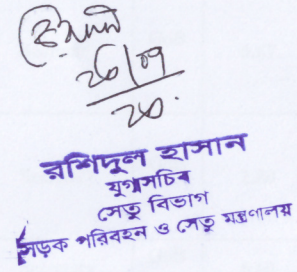 ২৬/০৭
২০
রশিদুল হাসান
যুগ্মসচিব
সেতু বিভাগ
সড়ক পরিবহন ও সেতু মন্ত্রণালয়